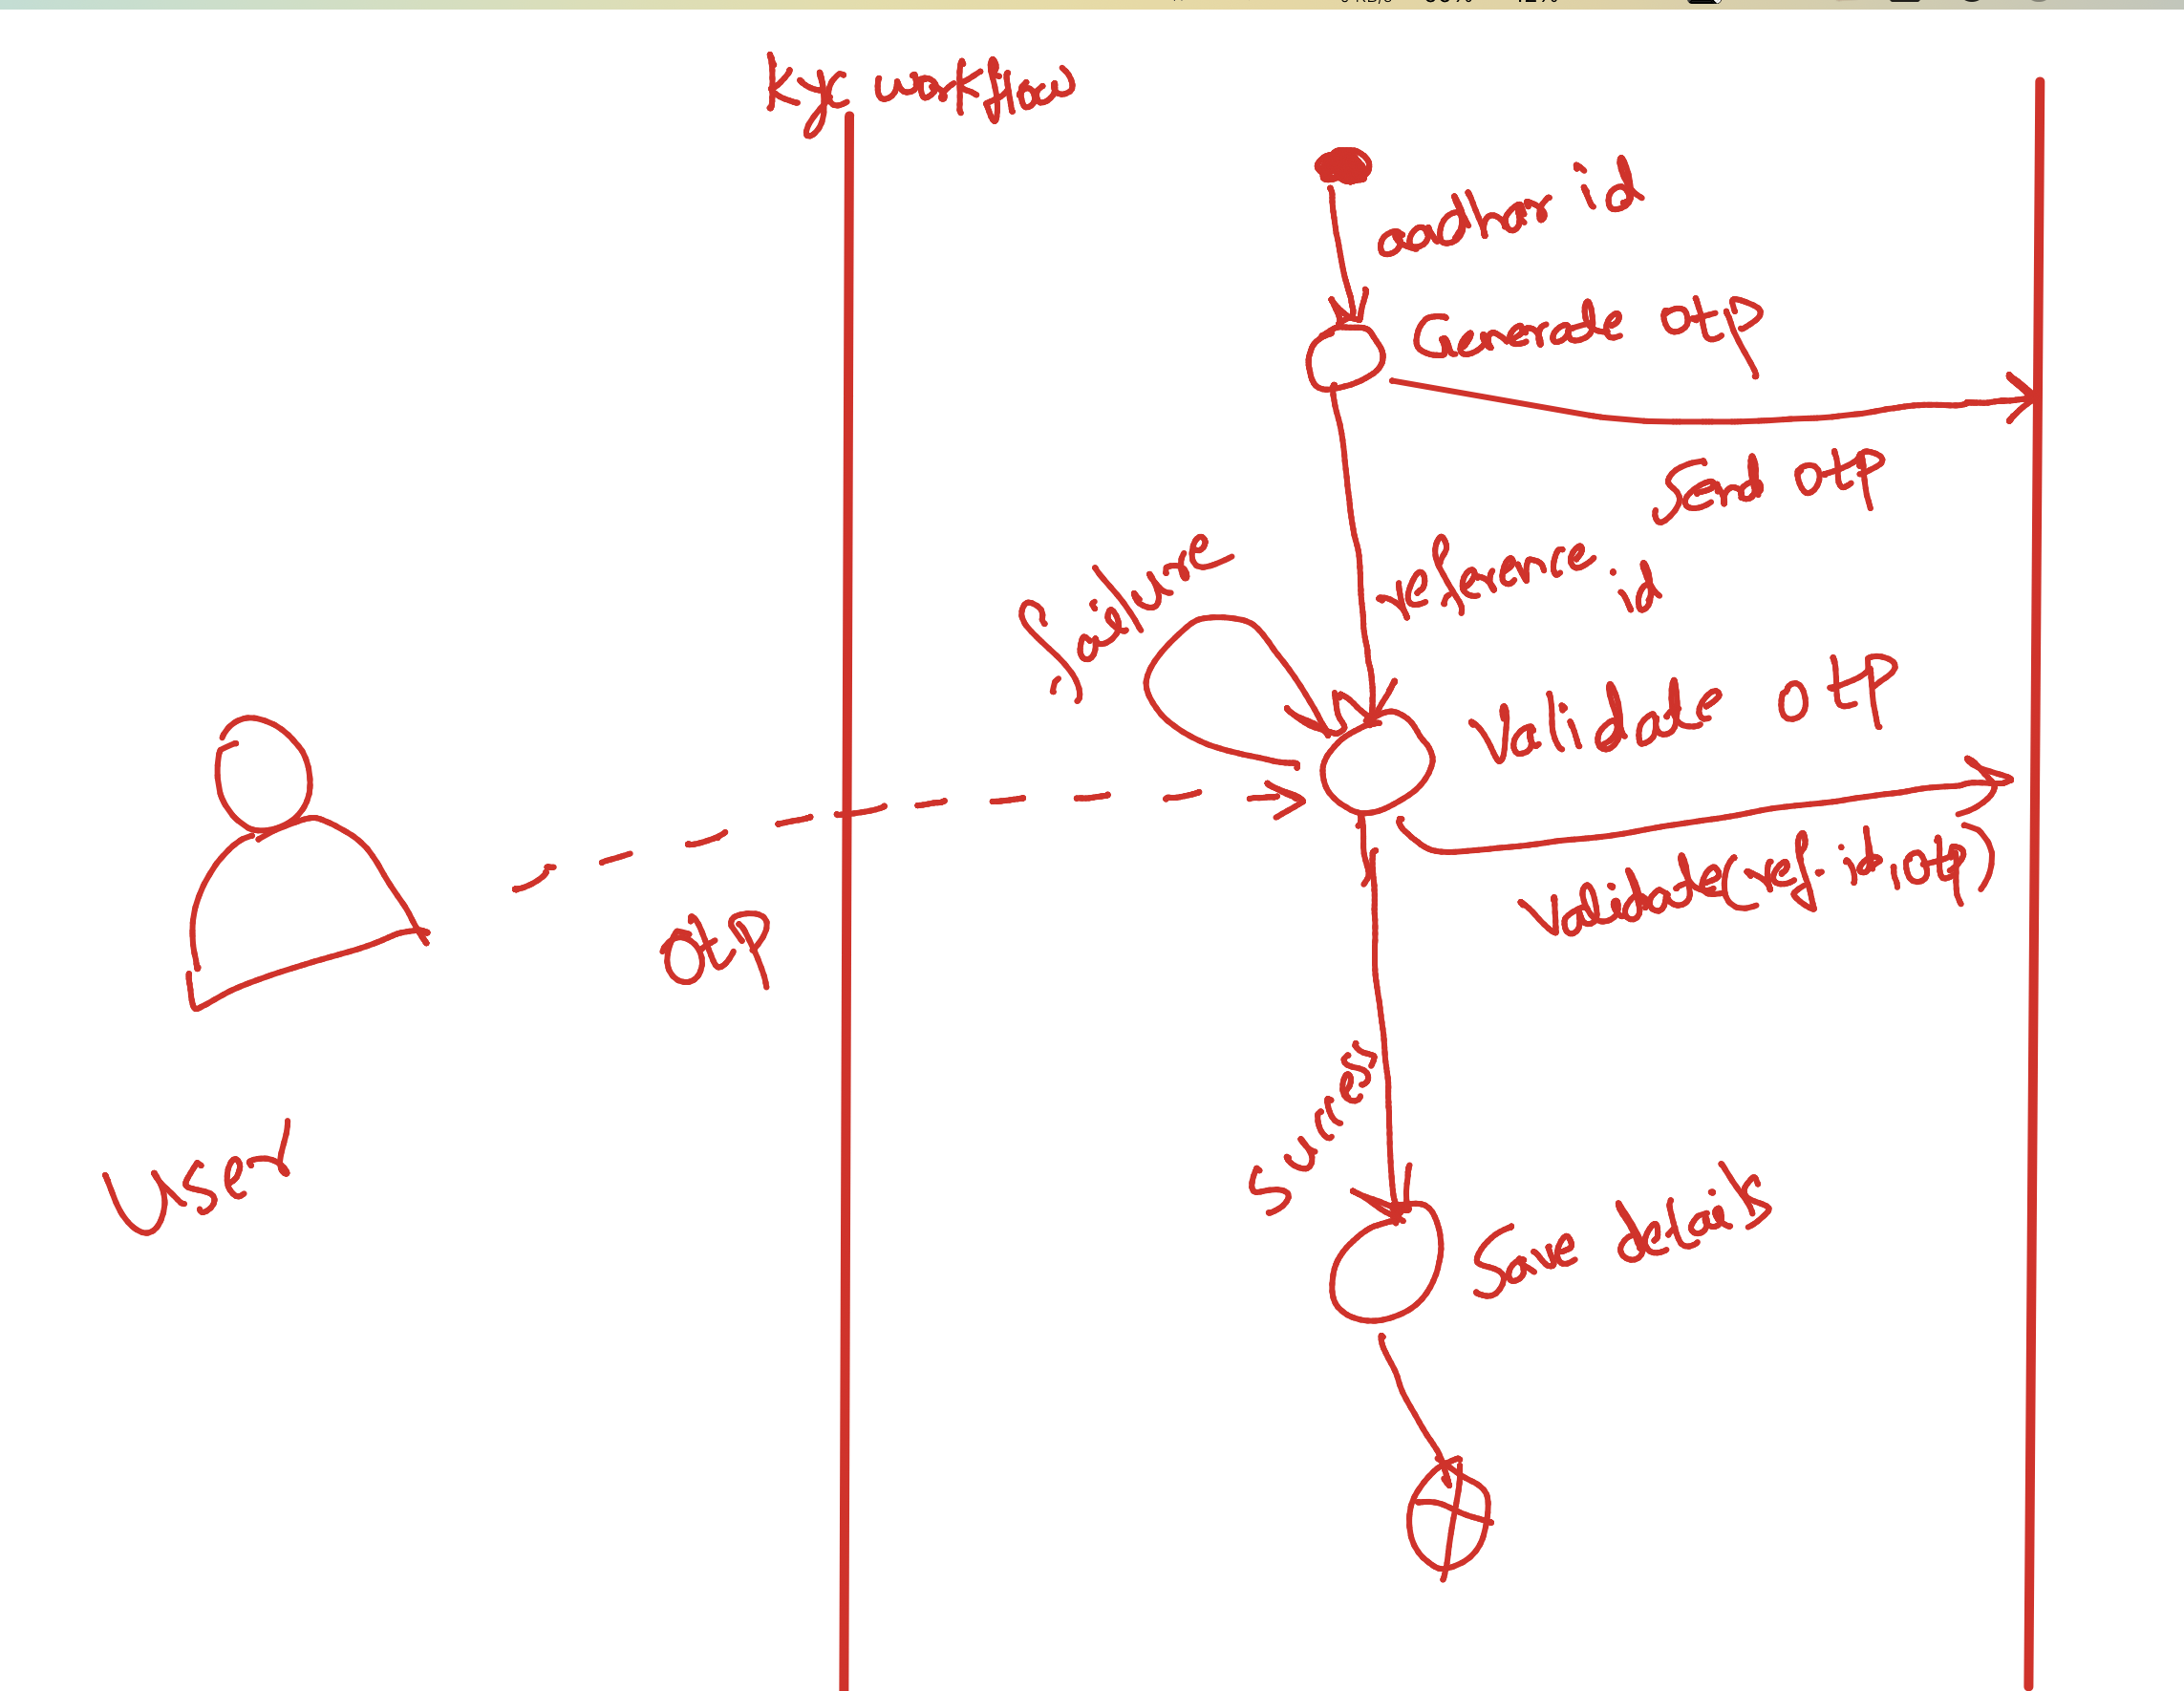 Kyc workflow
aadhar id
Generate OTP
Send OTP
reference id
failure
Validate OTP
Validate(ref-id, otp)
OTP
Success
User
Save details